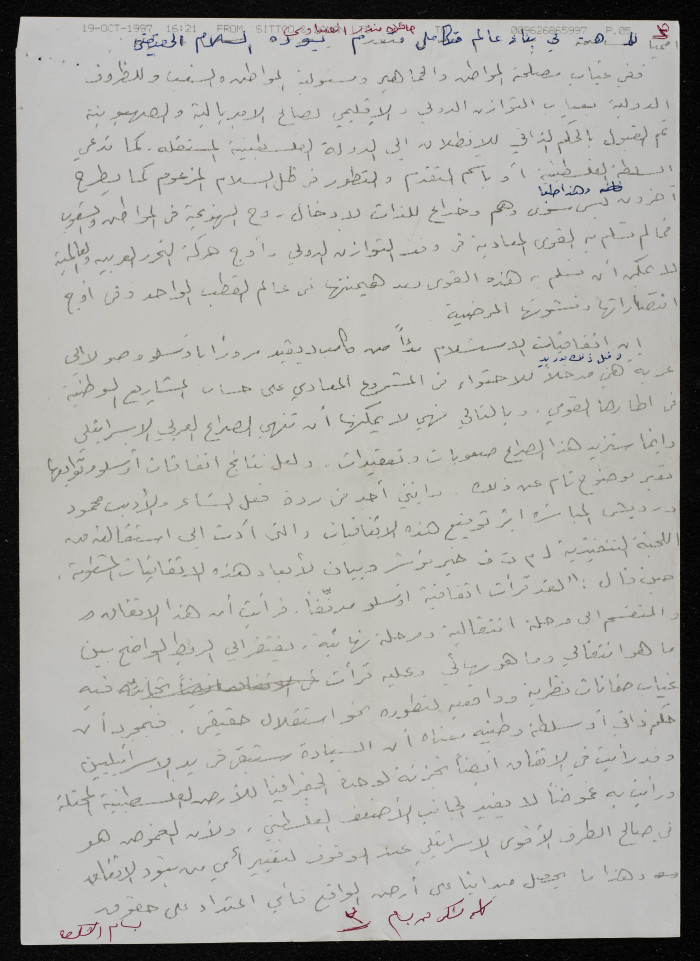 19-OCT-1997 16:21 FROM SITTO
009626865997 P.05
للمساهمة في بناء عالم متكامل متقدم يسوده السلام الحقيقي
ففي غياب مصلحة المواطن والجماهير ومسئولية المواطن والشعب وللظروف
الدولية بغياب التوازن الدولي والإقليمي لصالح الامبريالية والصهيونية
تم القبول بالحكم الذاتي للانطلاق الى الدولة الفلسطينية المستقله. كما تدعي
السلطة الفلسطينية أو باسم التقدم والتطور في ظل السلام المزعوم كما يطرح
آخرون ليس سوى وهم وخداع للذات لإدخال روح الهزيمة في المواطن والشعوب
وهذا طبعا
فما لم تسلم به القوى المعادية في وقت التوازن الدولي وأوج حركة التحرر العربيه والعالمية
لا يمكن أن تسلم به هذه القوى بعد هيمنتها في عالم القطب الواحد وفي أوج
انتصاراتها ونشوتها المرضية
إن اتفاقيات الاستسلام بدأً من كامب ديفيد مرورًا باوسلو وصولا الى
عربة هي مدخلاً للاحتواء في المشروع المعادي على حساب المشاريع الوطنية
في اطارها القومي. وبالتالي فهي لا يمكنها أن تنهي الصراع العربي الاسرائيلي
وانما ستزيد هذا الصراع صعوبات وتعقيدات. ولعل نتائج اتفاقات أوسلو وتوابعها
تعبر بوضوح تام عن ذلك. وإنني أجد في ردة فعل الشاعر والأديب محمود
درويش المباشرة اثر توقيع هذه الاتفاقيات والتي أدت الى استقالته من
اللجنة التنفيذية ل م ت ف خير مؤشر وبيان لأبعاد هذه الاتفاقيات المشئومة.
حين قال: "لقد قرأت اتفاقية اوسلو مدققًا. فرأيت أن هذا الاتفاق
والمنقسم الى مرحلة انتقالية ومرحلة نهائية، يفتقر الى الربط الواضح بين
ما هو انتقالي وما هو نهائي وعليه قرأت فيه
غياب ضمانات نظرية وواقعيه لتطوره نحو استقلال حقيقي. فمجرد أن
حكم ذاتي أو سلطة وطنيه معناه أن السيادة ستبقى في يد الاسرائيليين
وقد رأيت في الاتفاق ايضاً تجزئة لوحدة الجغرافيا للأرض الفلسطينية المحتلة
ورأيت به غموضاً لا يفيد الجانب الأضعف الفلسطيني، ولأن الغموض هو
في صالح الطرف الأقوى الاسرائيلي عند الوقوف لتفسير أي من بنود الاتفاق
وهذا ما يحصل ميدانيا على أرض الواقع فأي اعتداء على حقوق
٣